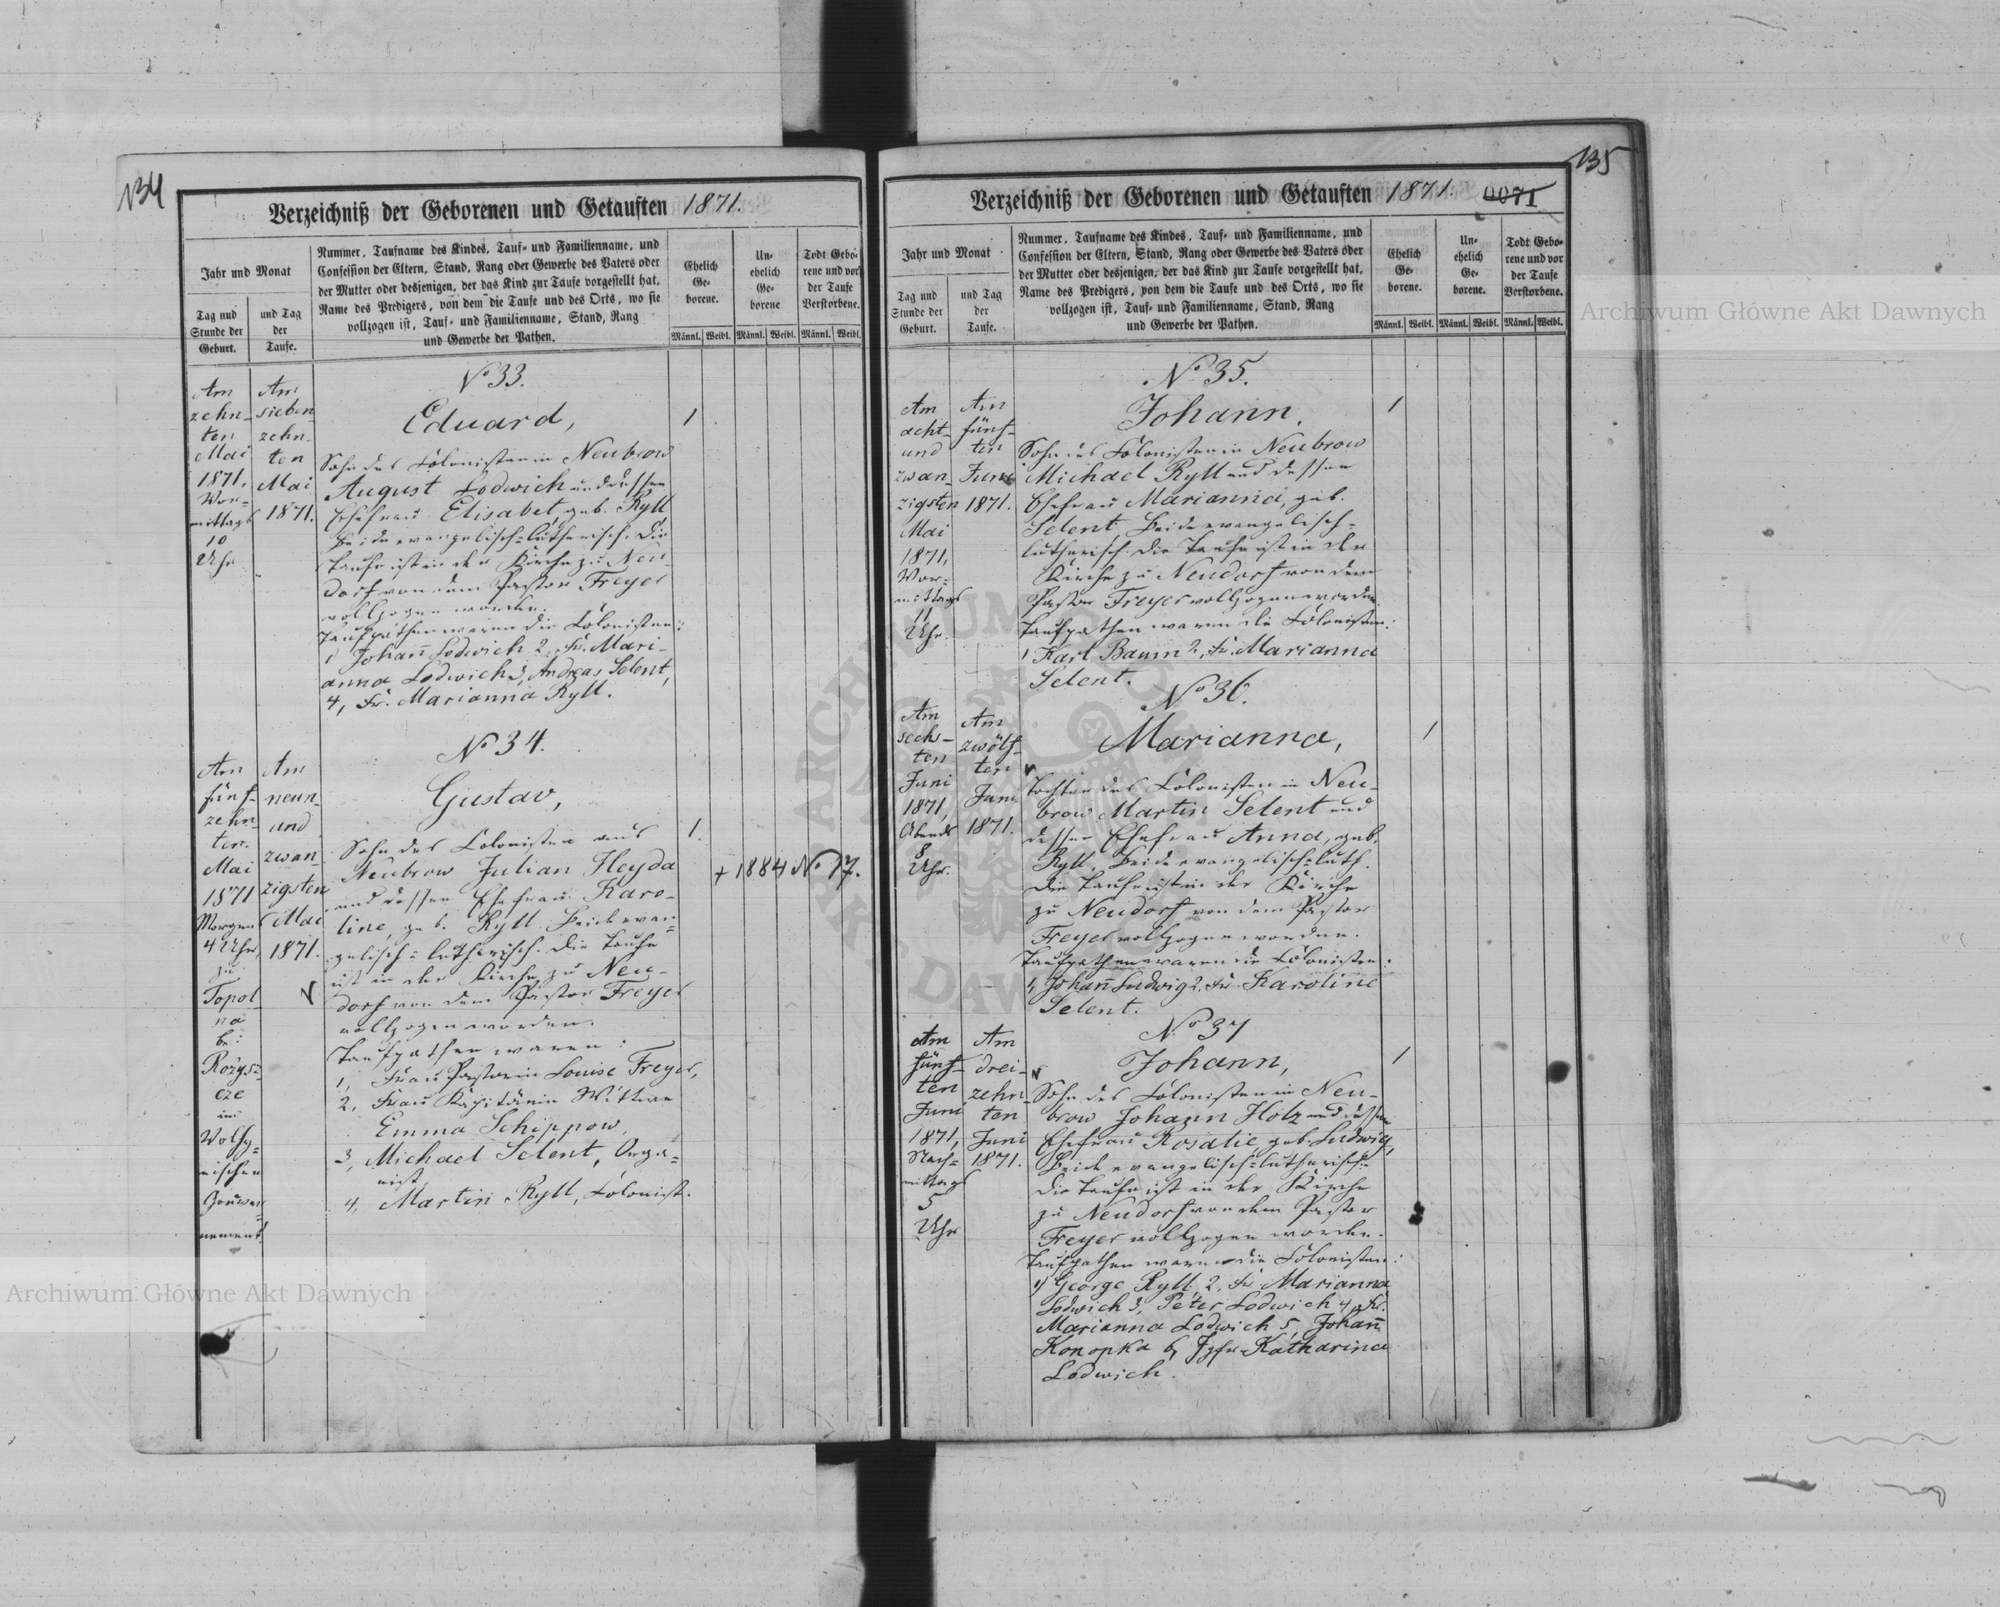 134
Verzeichniß der Geborenen und Getauften 1871.
Jahr und Monat
Tag und
Stunde der
Geburt.
und Tag
der
Taufe.
Nummer, Taufname des Kindes, Tauf- und Familienname, und
Confession der Eltern, Stand, Rang oder Gewerbe des Vaters oder
der Mutter oder desjenigen, der das Kind zur Taufe vorgestellt hat,
Name des Predigers, von dem die Taufe und des Orts, wo sie
vollzogen ist, Tauf- und Familienname, Stand, Rang
und Gewerbe der Pathen.
Ehelich
Ge-
borene.
Un-
ehelich
Ge-
borene.
Todt Gebo-
rene und vor
der Taufe
Verstorbene.
Männl. Weibl. Männl. Weibl. Männl. Weibl.
Am
zehn-
ten
Mai
1871,
Vor-
mittags
10
Uhr
Am
sieben
zehn-
ten
Mai
1871.
No 33.
Eduard,
Sohn des Colonisten in Neubrow
August Lodwich und dessen
Ehefrau Elisabet, geb. Ryll
beide evangelisch-lutherisch. Die
Taufe ist in der Kirche zu Neu-
dorf von dem Pastor Freyer
vollzogen worden.
Taufpathen waren die Colonisten:
1, Johañ Lodwich 2, Fr. Mari-
anna Lodwich 3, Andreas Selent,
4, Fr. Marianna Ryll.
1
Am
fünf-
zehn-
ten
Mai
1871
Morgens
4 Uhr,
zu
Topol-
na
bei
Rożysz-
cze
im
Wolhy-
nischen
Gouver-
nement.
Am
neun-
und
zwan
zigsten
Mai
1871.
No 34.
Gustav,
Sohn des Colonisten aus
Neubrow Julian Heyda
und dessen Ehefrau Karo-
line, geb. Ryll beide evan-
gelisch-lutherisch. Die Taufe
ist in der Kirche zu Neu-
dorf von dem Pastor Freyer
vollzogen worden.
Taufpathen waren:
1, Frau Pastorin Louise Freyer,
2, Frau Kapitänin Wittwe
Emma Schippow,
3, Michael Selent, Orga-
nist,
4, Martin Ryll, Colonist.
1.
+ 1884 No 17.
135
Verzeichniß der Geborenen und Getauften 1871.
0071
Jahr und Monat
Tag und
Stunde der
Geburt.
und Tag
der
Taufe.
Nummer, Taufname des Kindes, Tauf- und Familienname, und
Confession der Eltern, Stand, Rang oder Gewerbe des Vaters oder
der Mutter oder desjenigen, der das Kind zur Taufe vorgestellt hat,
Name des Predigers, von dem die Taufe und des Orts, wo sie
vollzogen ist, Tauf- und Familienname, Stand, Rang
und Gewerbe der Pathen.
Ehelich
Ge-
borene.
Un-
ehelich
Ge-
borene.
Todt Gebo-
rene und vor
der Taufe
Verstorbene.
Männl. Weibl. Männl. Weibl. Männl. Weibl.
Am
acht-
und
zwan
zigsten
Mai
1871,
Vor-
mittags
11
Uhr.
Am
fünf-
ten
Juni
1871.
No 35.
Johann,
Sohn des Colonisten in Neubrow
Michael Ryll und dessen
Ehefrau Marianna, geb.
Selent beide evangelisch-
lutherisch. Die Taufe ist in der
Kirche zu Neudorf von dem
Pastor Freyer vollzogen worden.
Taufpathen waren die Colonisten:
1 Karl Baum 2, Fr. Marianna
Selent.
1
Am
sechs-
ten
Juni
1871,
Abends
8
Uhr.
Am
zwölf-
ten
Juni
1871.
No 36.
Marianna,
Tochter des Colonisten in Neu-
brow Martin Selent und
dessen Ehefrau Anna, geb.
Ryll, beide evangelisch-luth.
Die Taufe ist in der Kirche
zu Neudorf von dem Pastor
Freyer vollzogen worden.
Taufpathen waren die Colonisten:
1, Johañ Ludwig 2. Fr. Karoline
Selent.
1
Am
fünf-
ten
Juni
1871,
Nach-
mittags
5
Uhr
Am
drei-
zehn-
ten
Juni
1871.
No 37
Johann,
Sohn des Colonisten in Neu-
brow Johann Holz und dessen
Ehefrau Rosalie, geb. Ludwig,
beide evangelisch-lutherisch.
Die Taufe ist in der Kirche
zu Neudorf von dem Pastor
Freyer vollzogen worden.
Taufpathen waren die Colonisten:
1, George Ryll 2, Fr. Marianna
Lodwich 3, Peter Lodwich 4, Fr.
Marianna Lodwich 5, Johañ
Konopka 6, Jgfr. Katharina
Lodwich.
1
Archiwum Główne Akt Dawnych
Archiwum Główne Akt Dawnych